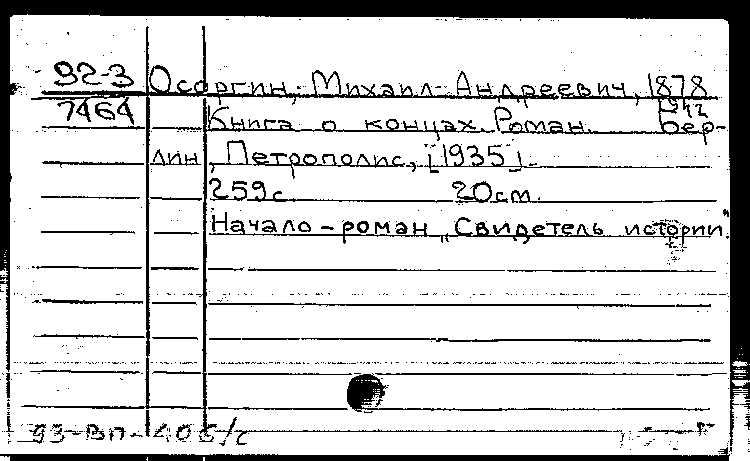 92-3 Осоргин, Михаил Андреевич, 1878
7464 1942
Книга о концах. Роман. Бер-
лин, Петрополис, [1935].
259с. 20см.
Начало - роман „Свидетель истории".
93-ВП-406/с